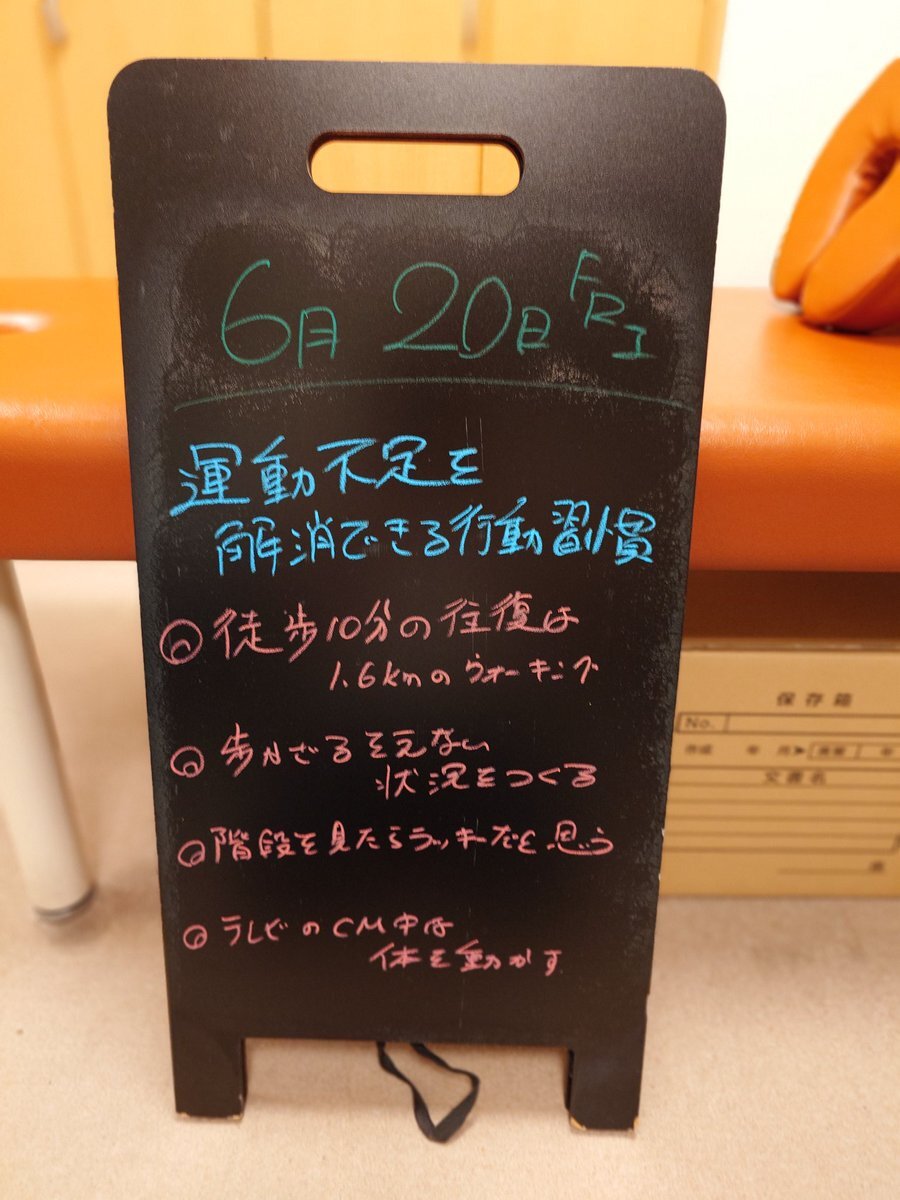 6月 20日 FRI
運動不足を
解消できる行動習慣
◎徒歩10分の往復は
1.6kmのウォーキング
◎歩かざるをえない
状況をつくる
◎階段を見たらラッキーだと思う
◎テレビのCM中は
体を動かす
保存箱
No.
作成 年 月▶ 廃棄 年
文書名